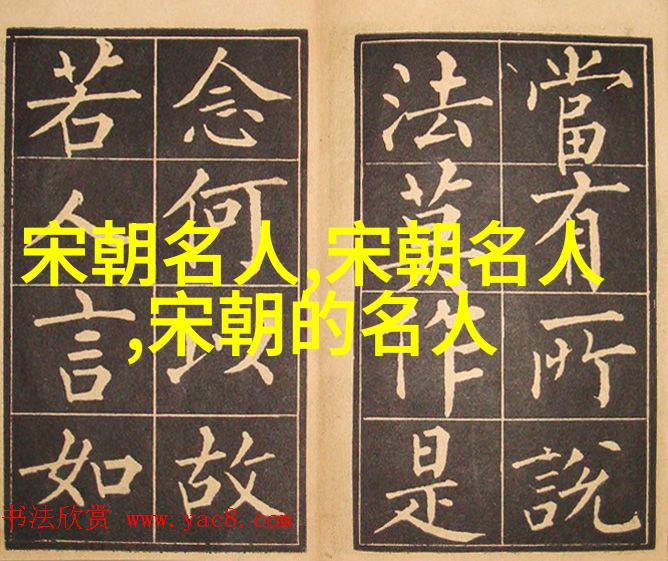 當有所說
法莫作是
念何以故
若人言如
宋朝名人,宋朝名人
,宋朝的名人
书法欣赏 www.yac8.com